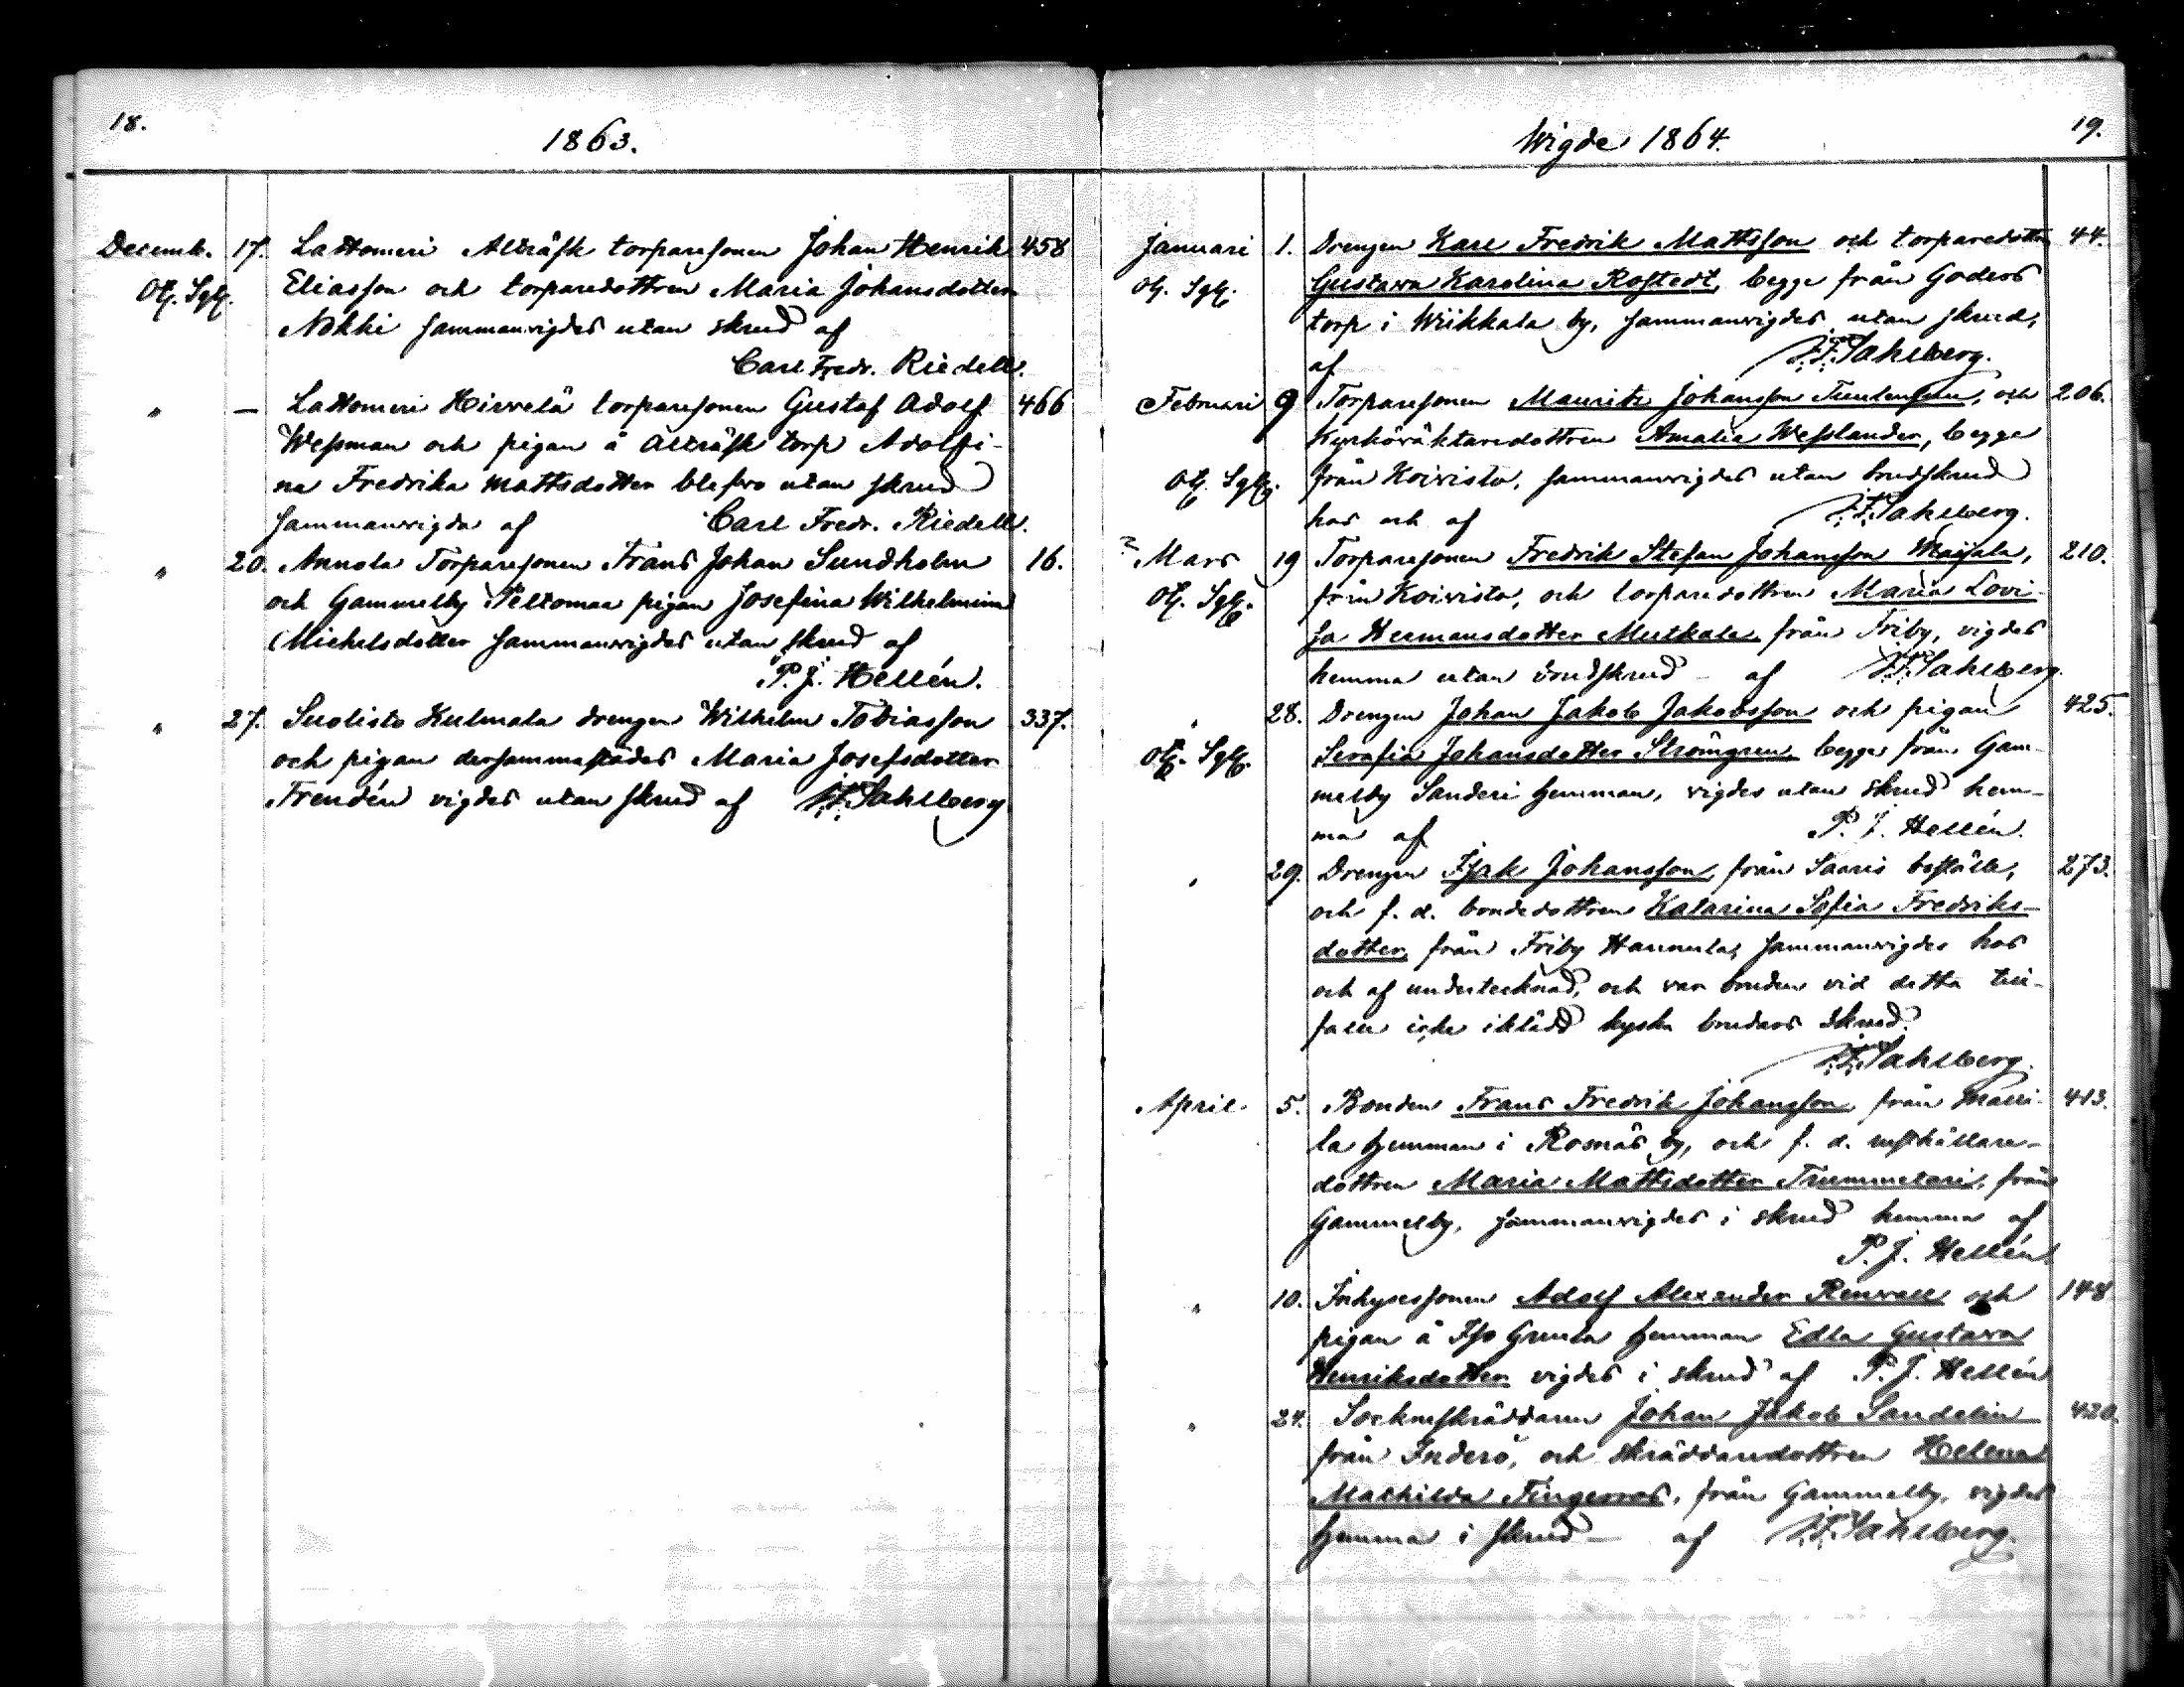 18.
1863.
Decemb. 17. Lattomeri Alträsk torparesonen Johan Henrik 458
Eliasson och torparedottren Maria Johansdotter
Nokki sammanvigdes utan skrud af
Carl Fredr. Riedell.
" — Lattomeri Hirvelä torparesonen Gustaf Adolf 466
Wessman och pigan å Alträsk torp Adolfi-
na Fredrika Mattsdotter blefvo utan skrud
sammanvigda af Carl Fredr. Riedell.
" 20. Annola Torparesonen Frans Johan Sundholm 16.
och Gammelby Peltomaa pigan Josefina Wilhelmina
Michelsdotter sammanvigdes utan skrud af
P. J. Hellén.
" 27. Suolisto Kulmala drengen Wilhelm Tobiasson 337.
och pigan dersammastädes Maria Josefsdotter
Frendén vigdes utan skrud af F. Sahlberg
Wigde 1864.
19.
Januari 1. Drengen Karl Fredrik Mattsson och torparedottren 44.
Gustava Karolina Rostedt, begge från Goders
torp i Wiikkala by, sammanvigdes utan skrud,
af F. Sahlberg.
Februari 9 Torparesonen Maurits Johansson och 206.
Kyrkoväktaredottren Amalia Wesslander, begge
från Koivisto, sammanvigdes utan brudskrud
hos och af F. Sahlberg.
Mars 19 Torparesonen Fredrik Stefan Johansson Maijala, 210.
från Koivisto, och torparedottren Maria Lovi-
sa Hermansdotter från Friby, vigdes
hemma utan brudskrud – af F. Sahlberg.
" 28. Drengen Johan Jakob Jakobsson och pigan 425.
Serafia Johansdotter Strömgren, begge från Gam-
melby Sanderi hemman, vigdes utan skrud hem-
ma af P. J. Hellén.
" 29. Drengen Isak Johansson, från Saaris boställe, 273.
och f. d. bondedottren Katarina Sofia Fredriks-
dotter, från Friby Hannula, sammanvigdes hos
och af undertecknad, och var bruden vid detta till-
fälle icke iklädd kyska brudars skrud.
F. Sahlberg.
April 5. Bonden Frans Fredrik Johansson från Mauri- 413.
la hemman i Rosnäs by, och f. d. rusthållare-
dottren Maria Mattsdotter Trummetari, från
Gammelby, sammanvigdes i skrud hemma af
P. J. Hellén.
" 10. Inhysessonen Adolf Alexander Renvall och 148
pigan å Iso Gruuta hemman Edla Gustava
Henriksdotter vigdes i skrud af P. J. Hellén
" 24. Sockneskräddaren Johan Jakob Sandelin 420.
från Inderö, och skräddaredottren Helena
Mathilda Fingerroos, från Gammelby, vigdes
hemma i skrud – af F. Sahlberg.